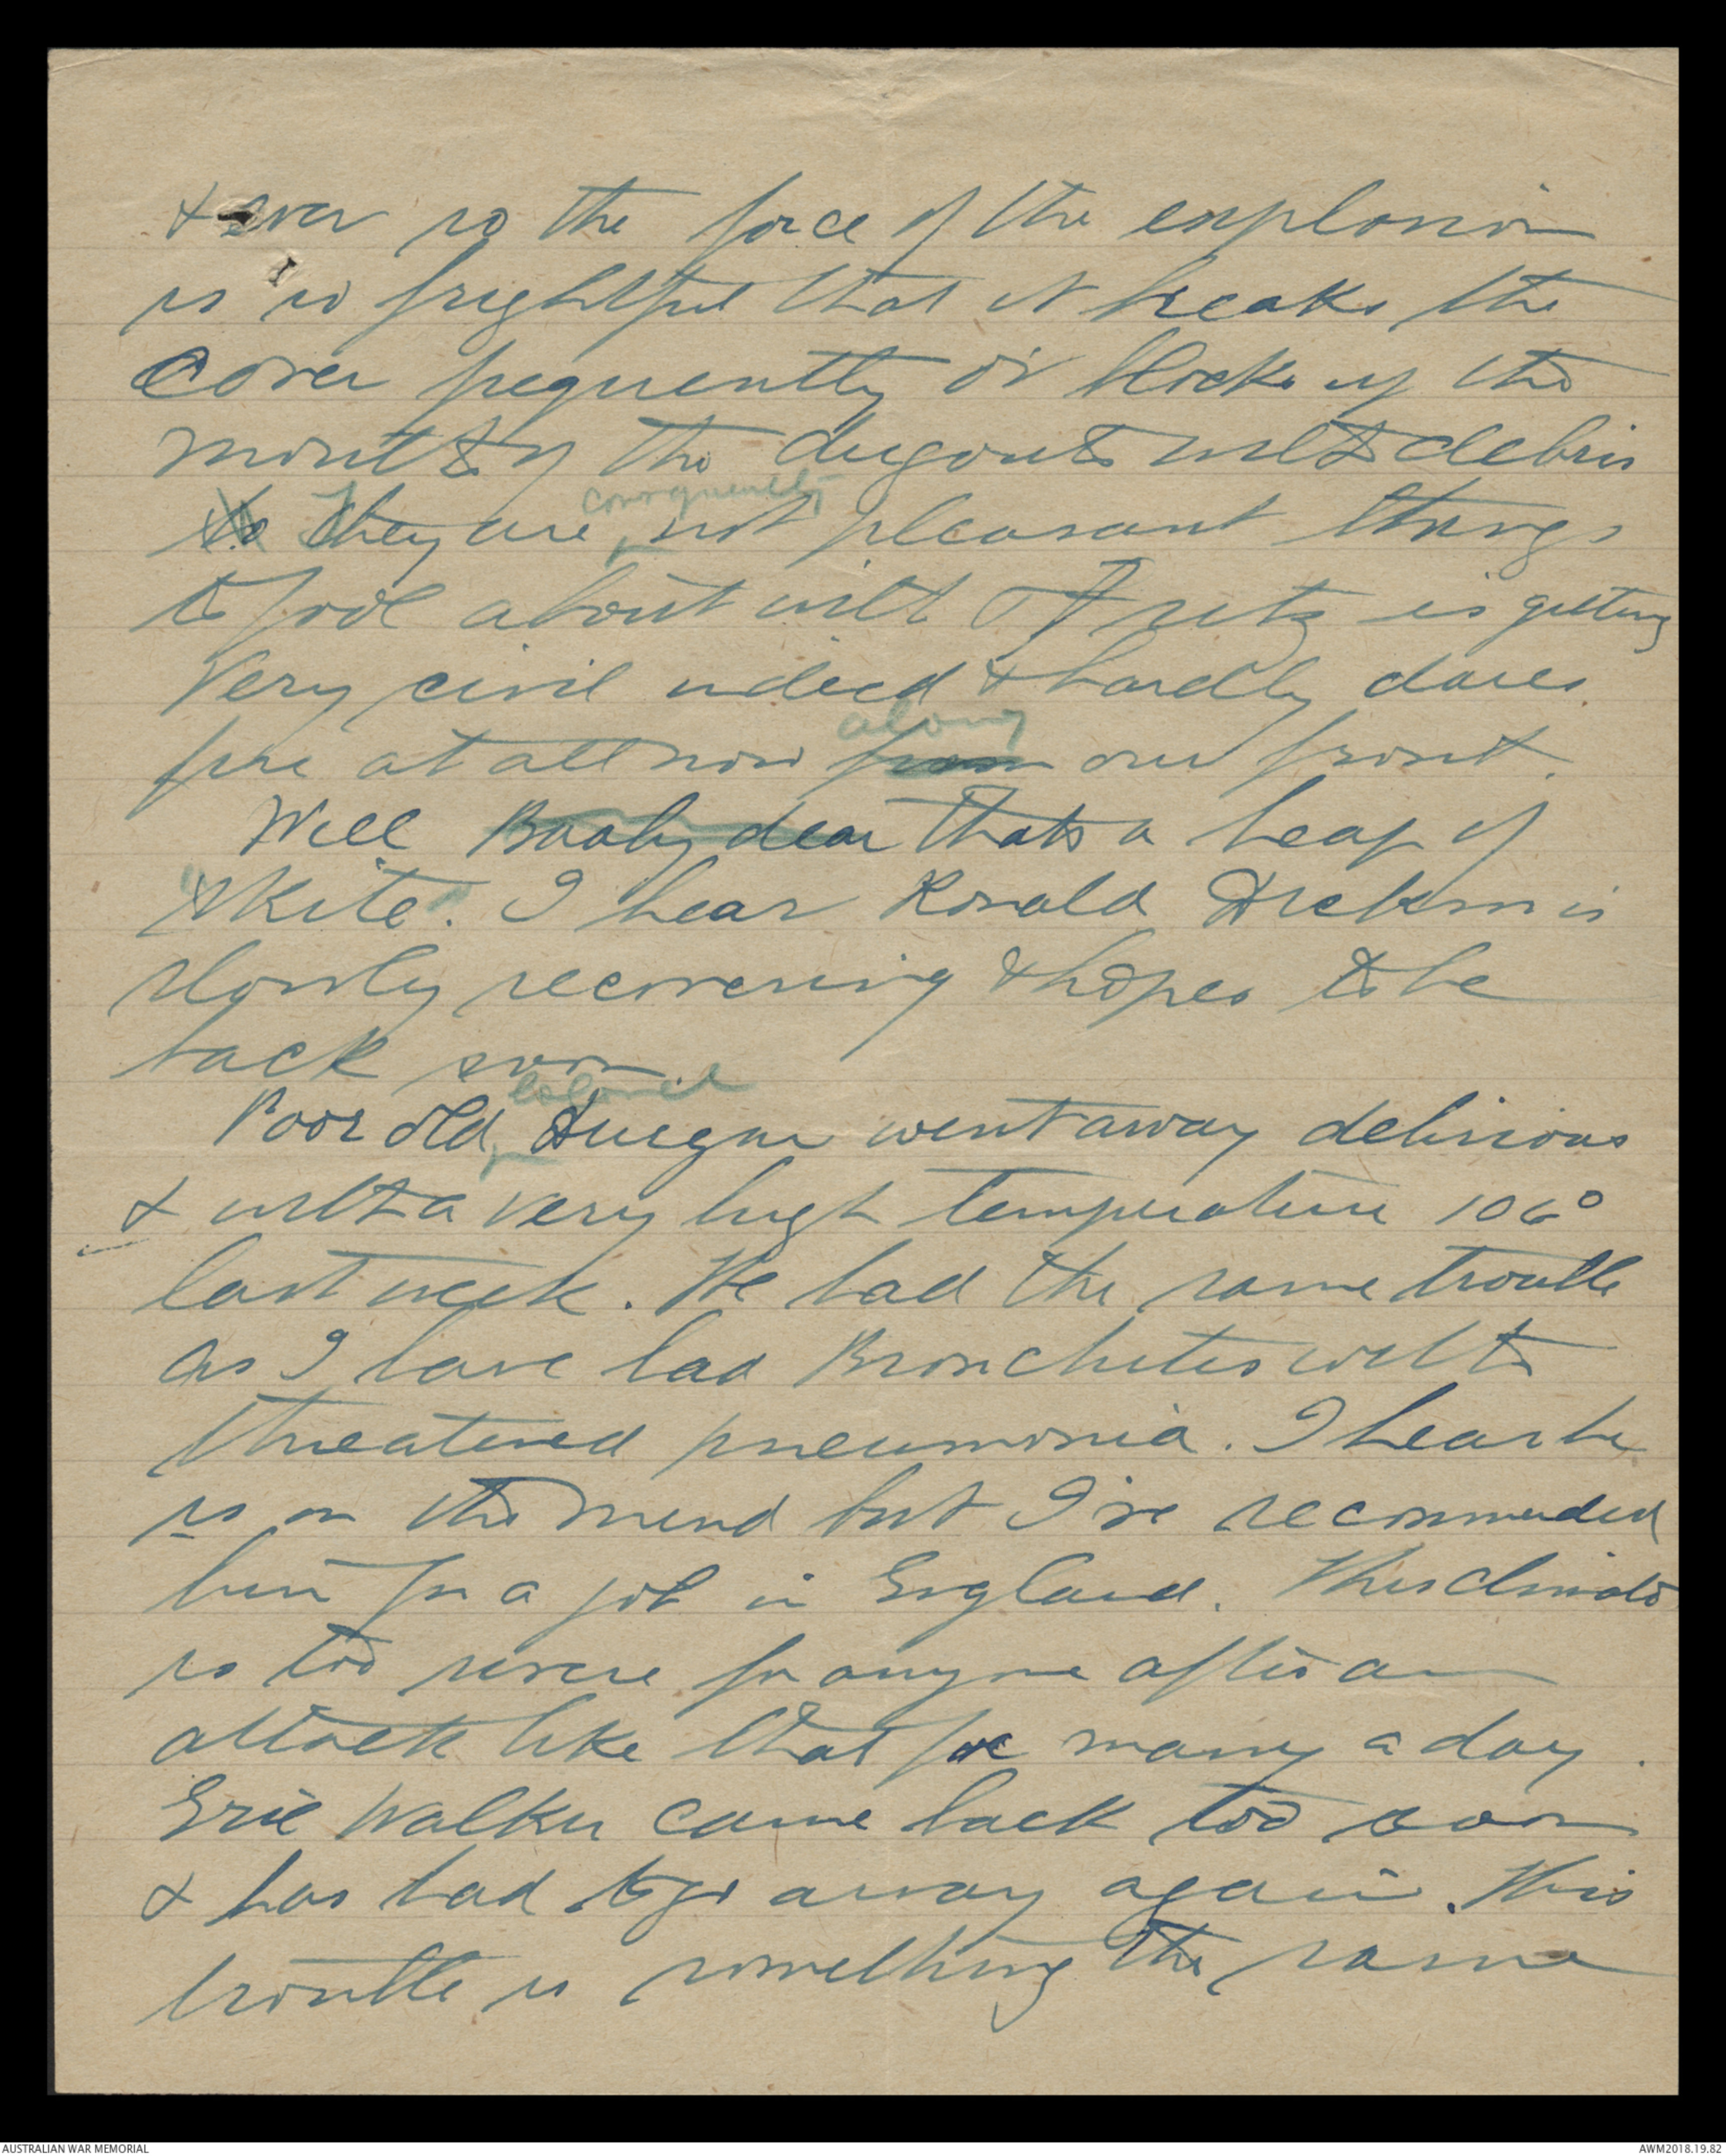 & over so the force of the explosion
is so frightful that it breaks the
cover frequently or blocks up the
mouths of the dugouts with debris
consequently
so they are not pleasant things
to fool about with Fritz is getting
very civil indeed & hardly dares
along
fire at all now from our front.
Well Baaby dear thats a heap of
"skite". I hear Ronald is
slowly recovering & hopes to be
back soon.
Colonel
Poor old went away delirious
& with a very high temperature 106°
last week. He had the same trouble
as I have had Bronchitis with
threatened pneumonia. I hear he
is on the mend but I've recommended
him for a job in England. This climate
is too severe for anyone after an
attack like that for many a day.
Eric Walker came back too soon
& has had to go away again. His
trouble is something the same
AUSTRALIAN WAR MEMORIAL
AWM2018.19.82